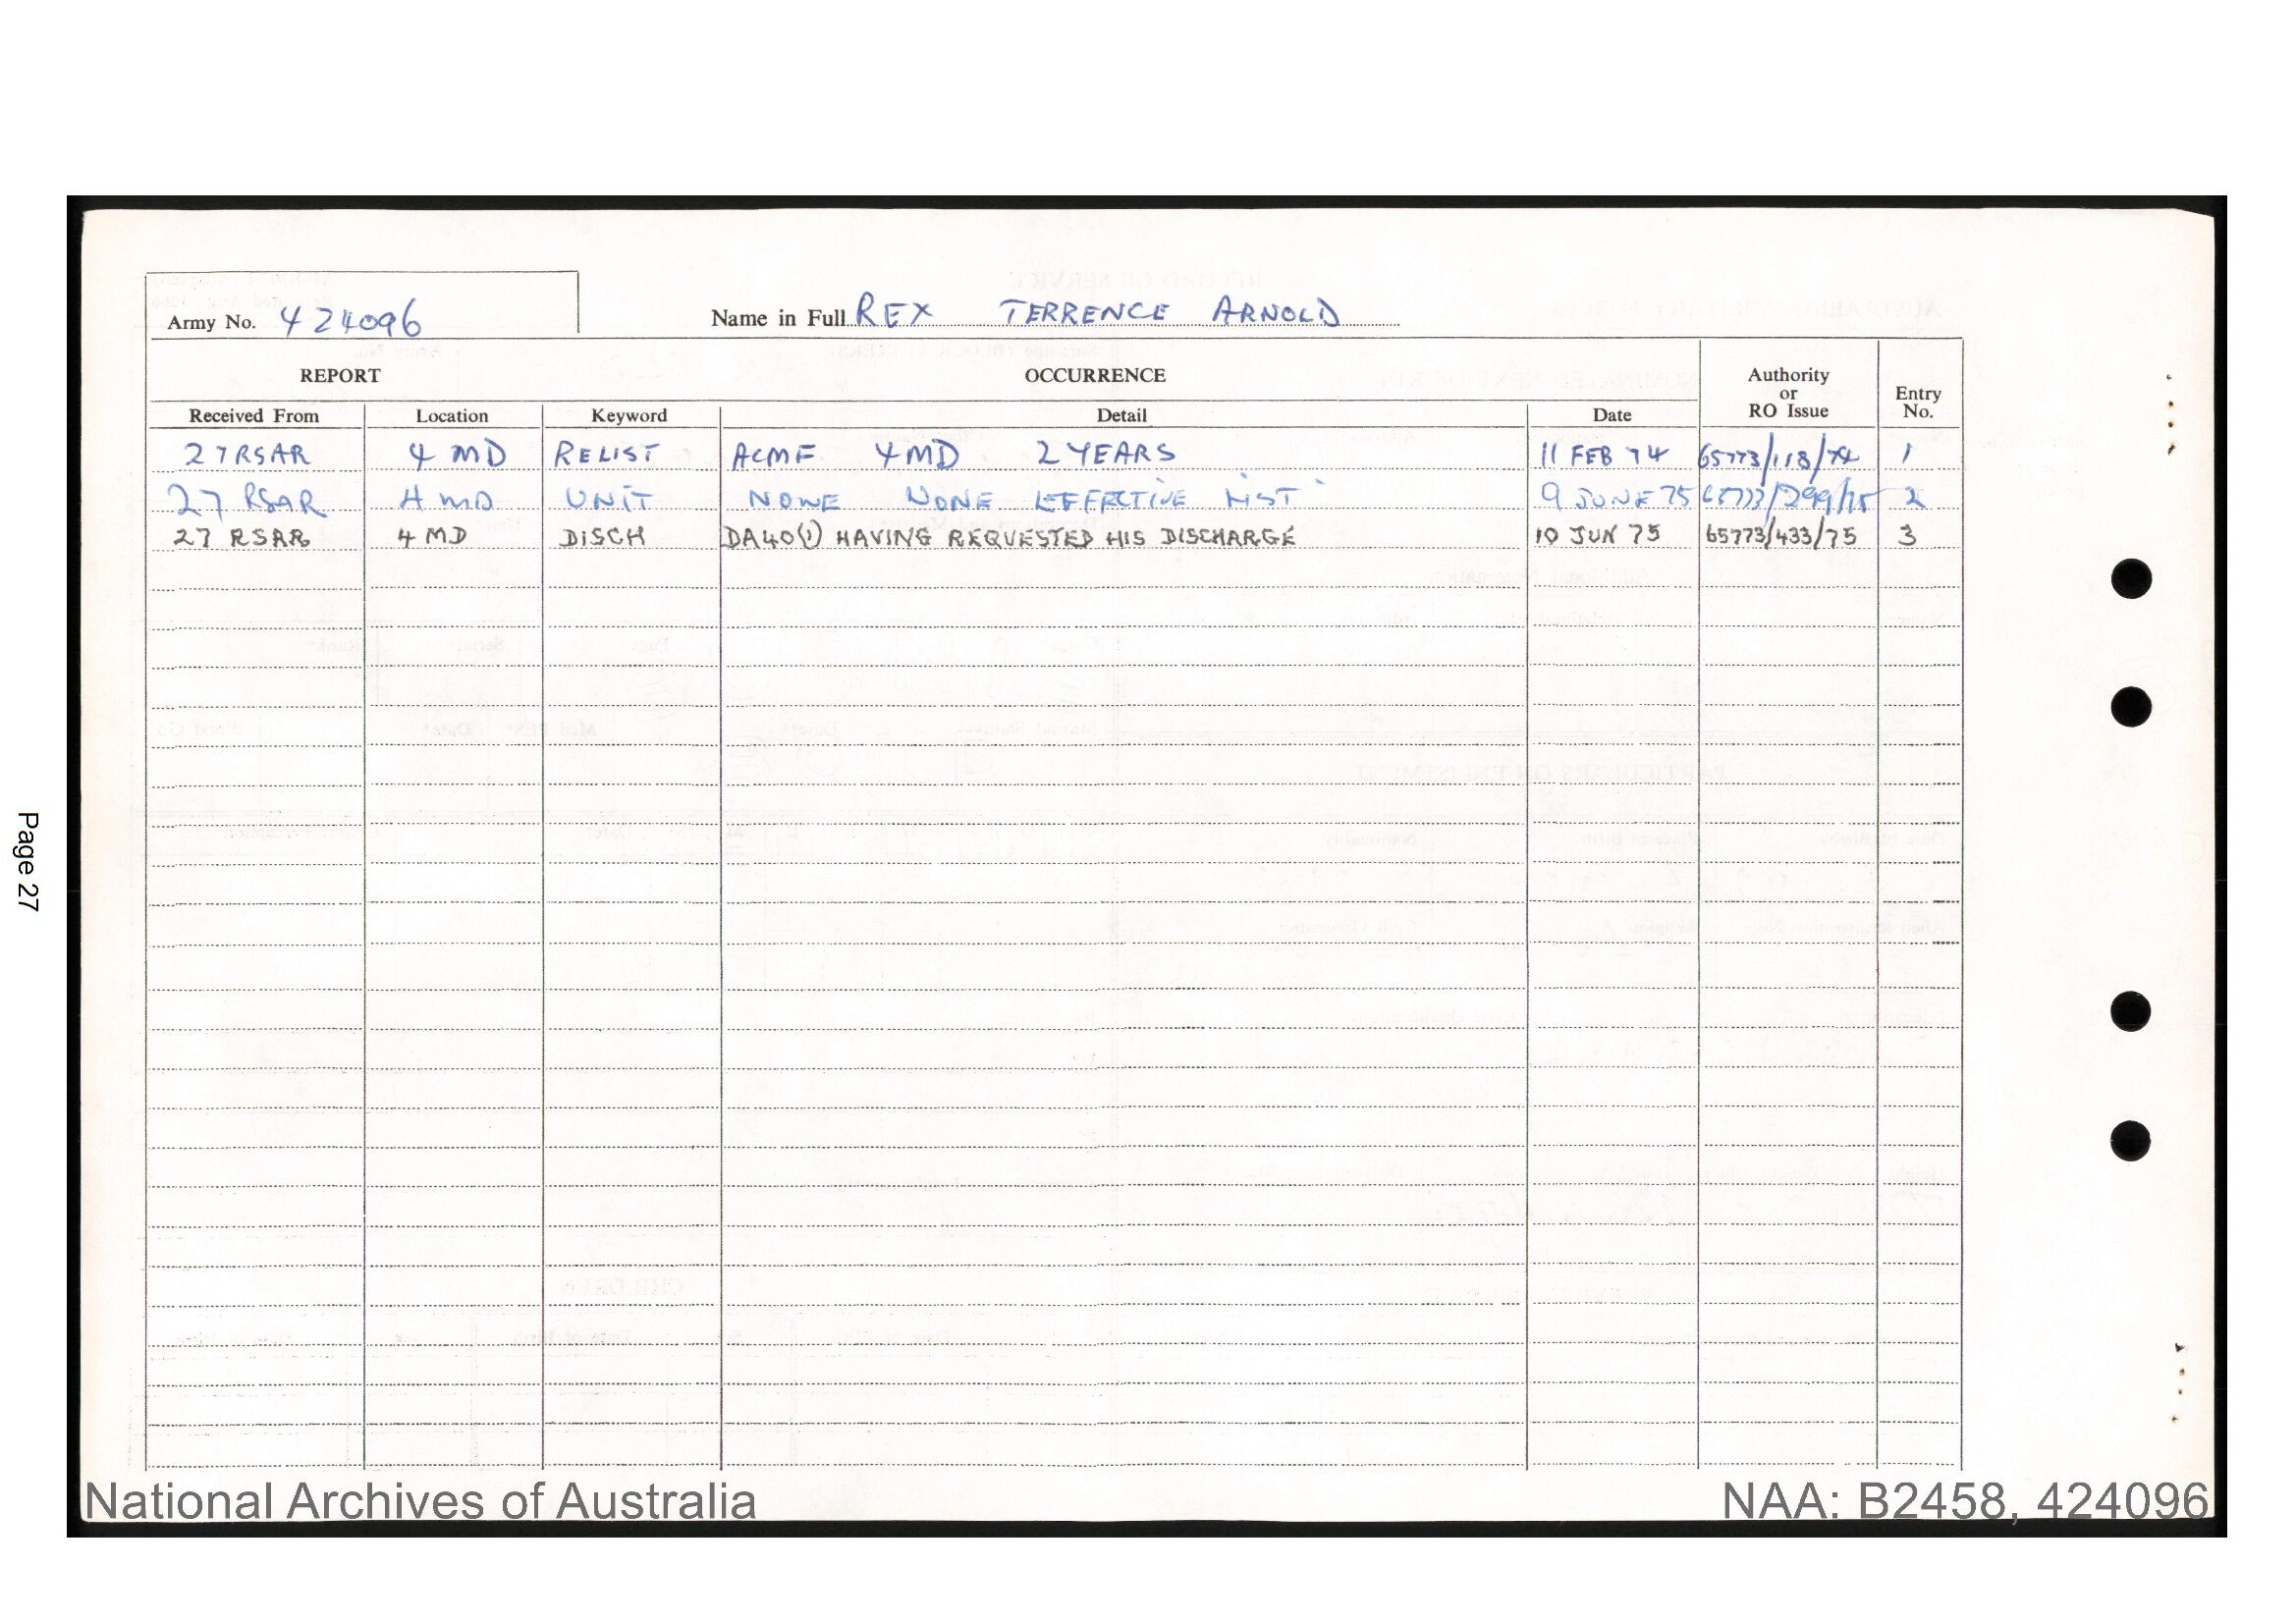 Army No. 424096 Name in Full REX TERRENCE ARNOLD
REPORT OCCURRENCE Authority or RO Issue Entry No.
Received From Location Keyword Detail Date
27 RSAR 4 MD RELIST ACMF 4MD 2 YEARS 11 FEB 74 65773/118/74 1
27 RSAR 4 MD UNIT NOWE NONE EFFECTIVE LIST 9 JUNE 75 65773/299/75 2
27 RSAR 4 MD DISCH DA40(1) HAVING REQUESTED HIS DISCHARGE 10 JUN 75 65773/433/75 3
Page 27
National Archives of Australia NAA: B2458, 424096